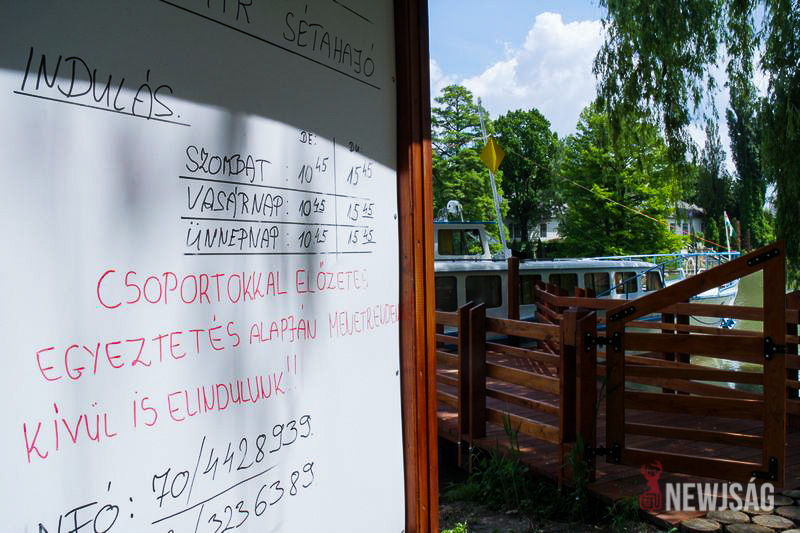 SÉTAHAJÓ
INDULÁS.
DE: DU:
SZOMBAT : 10 45 15 45
VASÁRNAP : 10 45 15 45
ÜNNEPNAP : 10 45 15 45
CSOPORTOKKAL ELŐZETES
EGYEZTETÉS ALAPJÁN MENETRENDEN
KÍVÜL IS ELINDULUNK!!
INFÓ: 70/4428939.
/3236389
NEWJSÁG